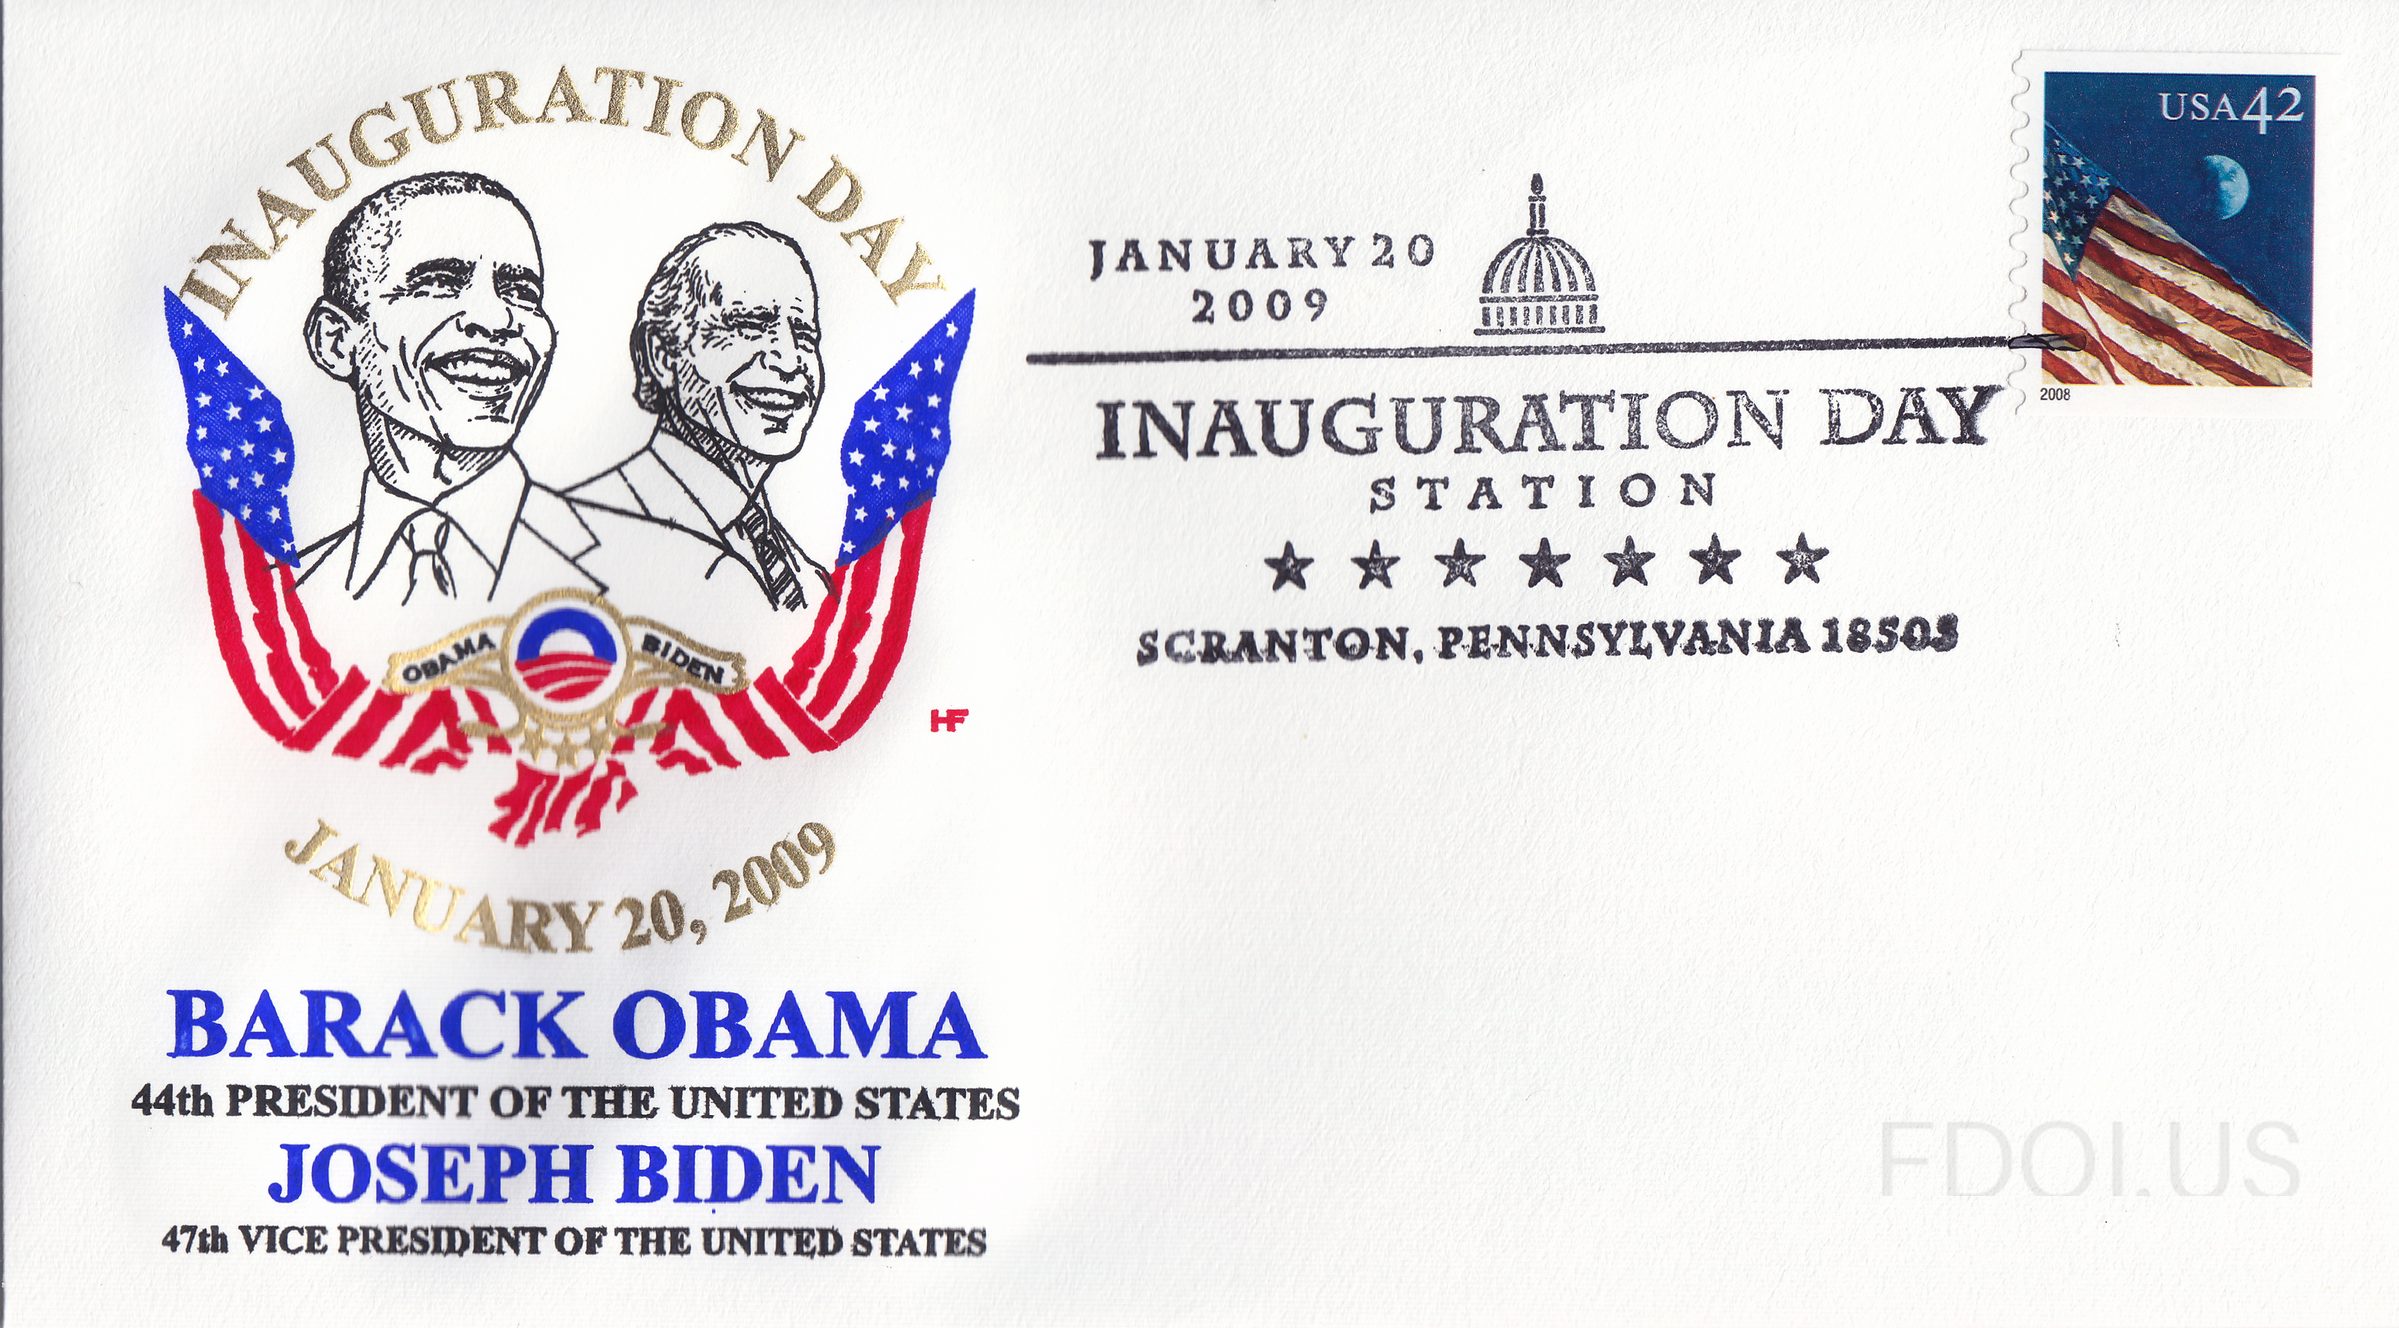 INAUGURATION DAY
OBAMA BIDEN
HF
JANUARY 20, 2009
BARACK OBAMA
44th PRESIDENT OF THE UNITED STATES
JOSEPH BIDEN
47th VICE PRESIDENT OF THE UNITED STATES
JANUARY 20
2009
INAUGURATION DAY
STATION
SCRANTON, PENNSYLVANIA 18505
USA 42
2008
FDOI.US